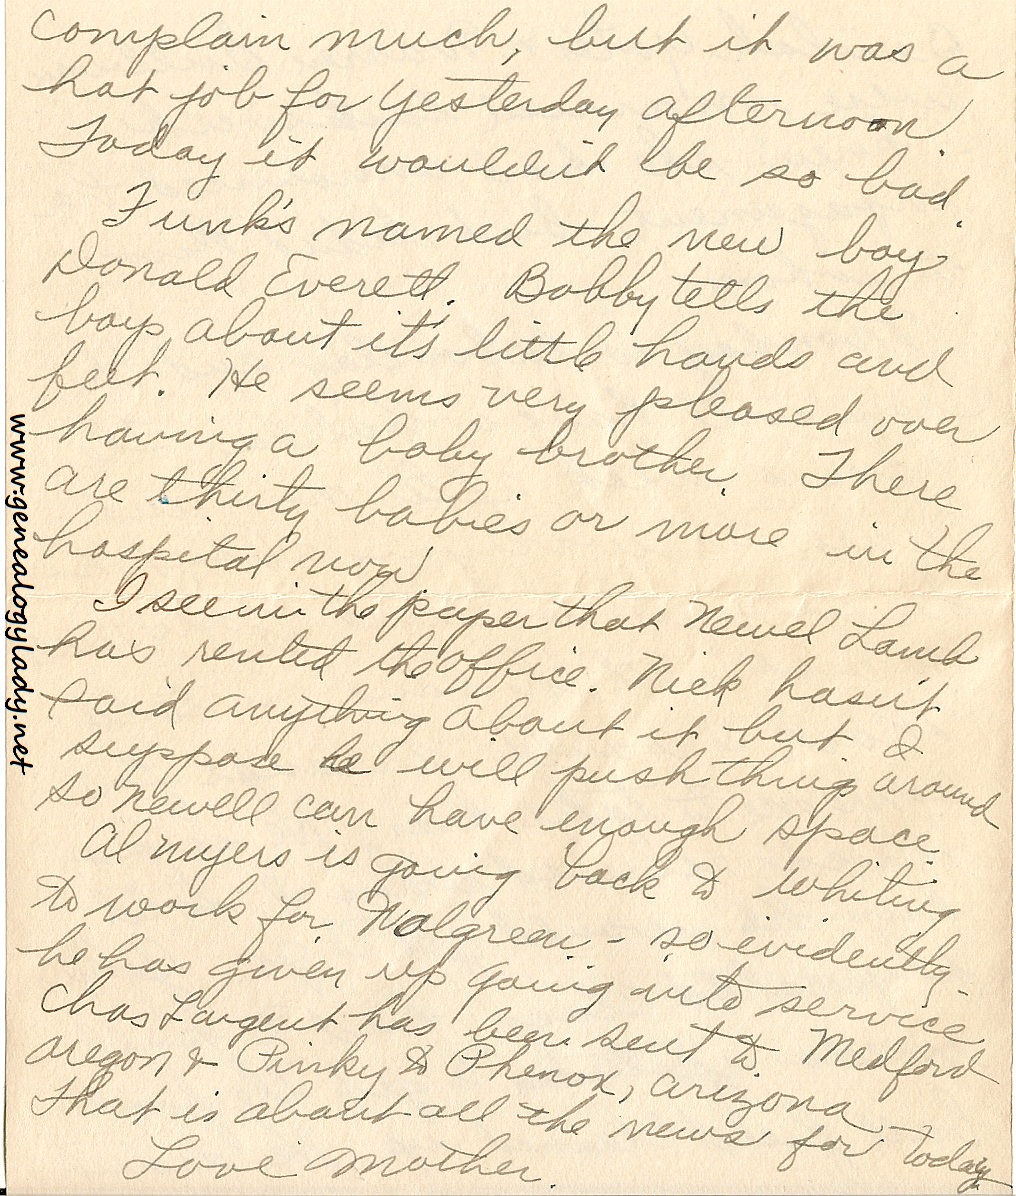 complain much, but it was a
hot job for yesterday afternoon.
Today it wouldn't be so bad.
Funk's named the new boy
Donald Everett. Bobby tells the
boys about it's little hands and
feet. He seems very pleased over
having a baby brother. There
are thirty babies or more in the
hospital now
I see in the paper that Newel Lamb
has rented the office. Nick hasn't
said anything about it but I
suppose he will push things around
so Newell can have enough space.
Al Myers is going back to Whiting
to work for Walgreen - so evidently
he has given up going into service.
Chas Largent has been sent to Medford
Oregon & Pinky to Phenox, Arizona
That is about all the news for today.
Love Mother.
www.genealogylady.net